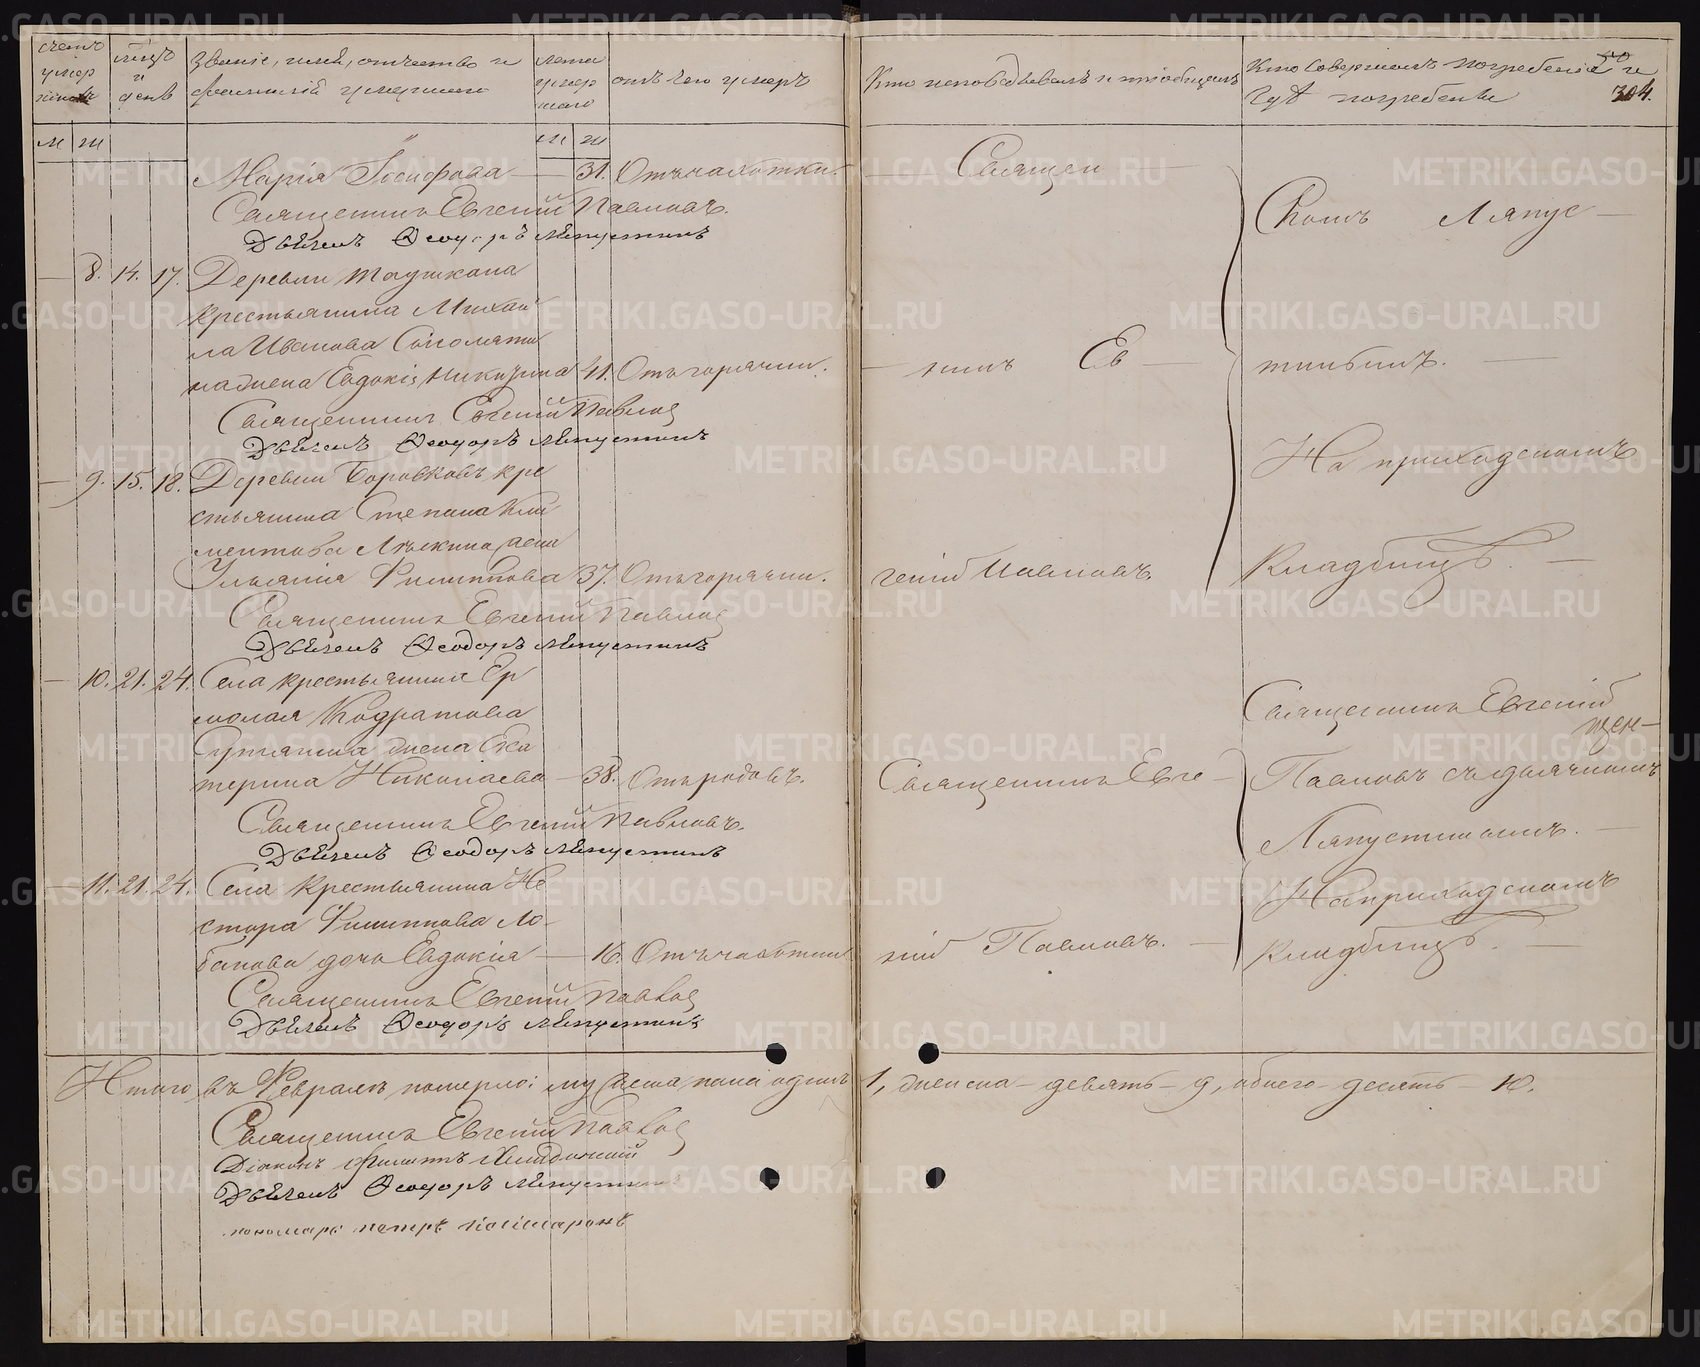 счетъ умер шихъ
мсцъ и день
Званіе, имя, отчество и фамилія умершихъ
лета умер шаго
отъ чего умеръ
Кто исповѣдывалъ и пріобщалъ
Кто совершалъ погребеніе и гдѣ погребены
304.
м ж
м ж
Марія Іосифова — 31. Отъ чахотки.
Священникъ Евгеній Павловъ.
Дьячекъ Ѳеодоръ Ляпустинъ
— 8. 14. 17. Деревни Таушкана
крестьянина Михаи
ла Иванова
жена Евдокія 41. Отъ горячки.
Священникъ Евгеній Павловъ
Дьячекъ Ѳеодоръ Ляпустинъ
— 9. 15. 18. Деревни Боровковъ кре
стьянина Степана Кли
ментова жена
Ульянія Филиппова 37. Отъ горячки.
Священникъ Евгеній Павловъ
Дьячекъ Ѳеодоръ Ляпустинъ
— 10. 21. 24. Села крестьянина Ер
молая Кодратова
жена Ека
терина Николаева — 38. Отъ родовъ.
Священникъ Евгеній Павловъ.
Дьячекъ Ѳеодоръ Ляпустинъ
— 11. 21. 24. Села крестьянина Не
стора Филиппова Ло-
банова дочь Евдокія — 16. Отъ чахотки
Священникъ Евгеній Павловъ
Дьячекъ Ѳеодоръ Ляпустинъ
— Священ —
никъ Ев —
геній Павловъ.
Священникъ Евге —
ній Павловъ. —
Ляпус —
тинымъ. —
На приходскомъ
Кладбищѣ. —
Священникъ Евгеній
Павловъ съ дьячкомъ
Ляпустинымъ. —
На приходскомъ
кладбищѣ. —
Итого въ Февралѣ померло: мужеска пола одинъ 1, женска — девять — 9, обоего — десять — 10.
Священникъ Евгеній Павловъ
Діаконъ Филиппъ
Дьячекъ Ѳеодоръ Ляпустинъ
пономарь петръ
METRIKI.GASO-URAL.RU